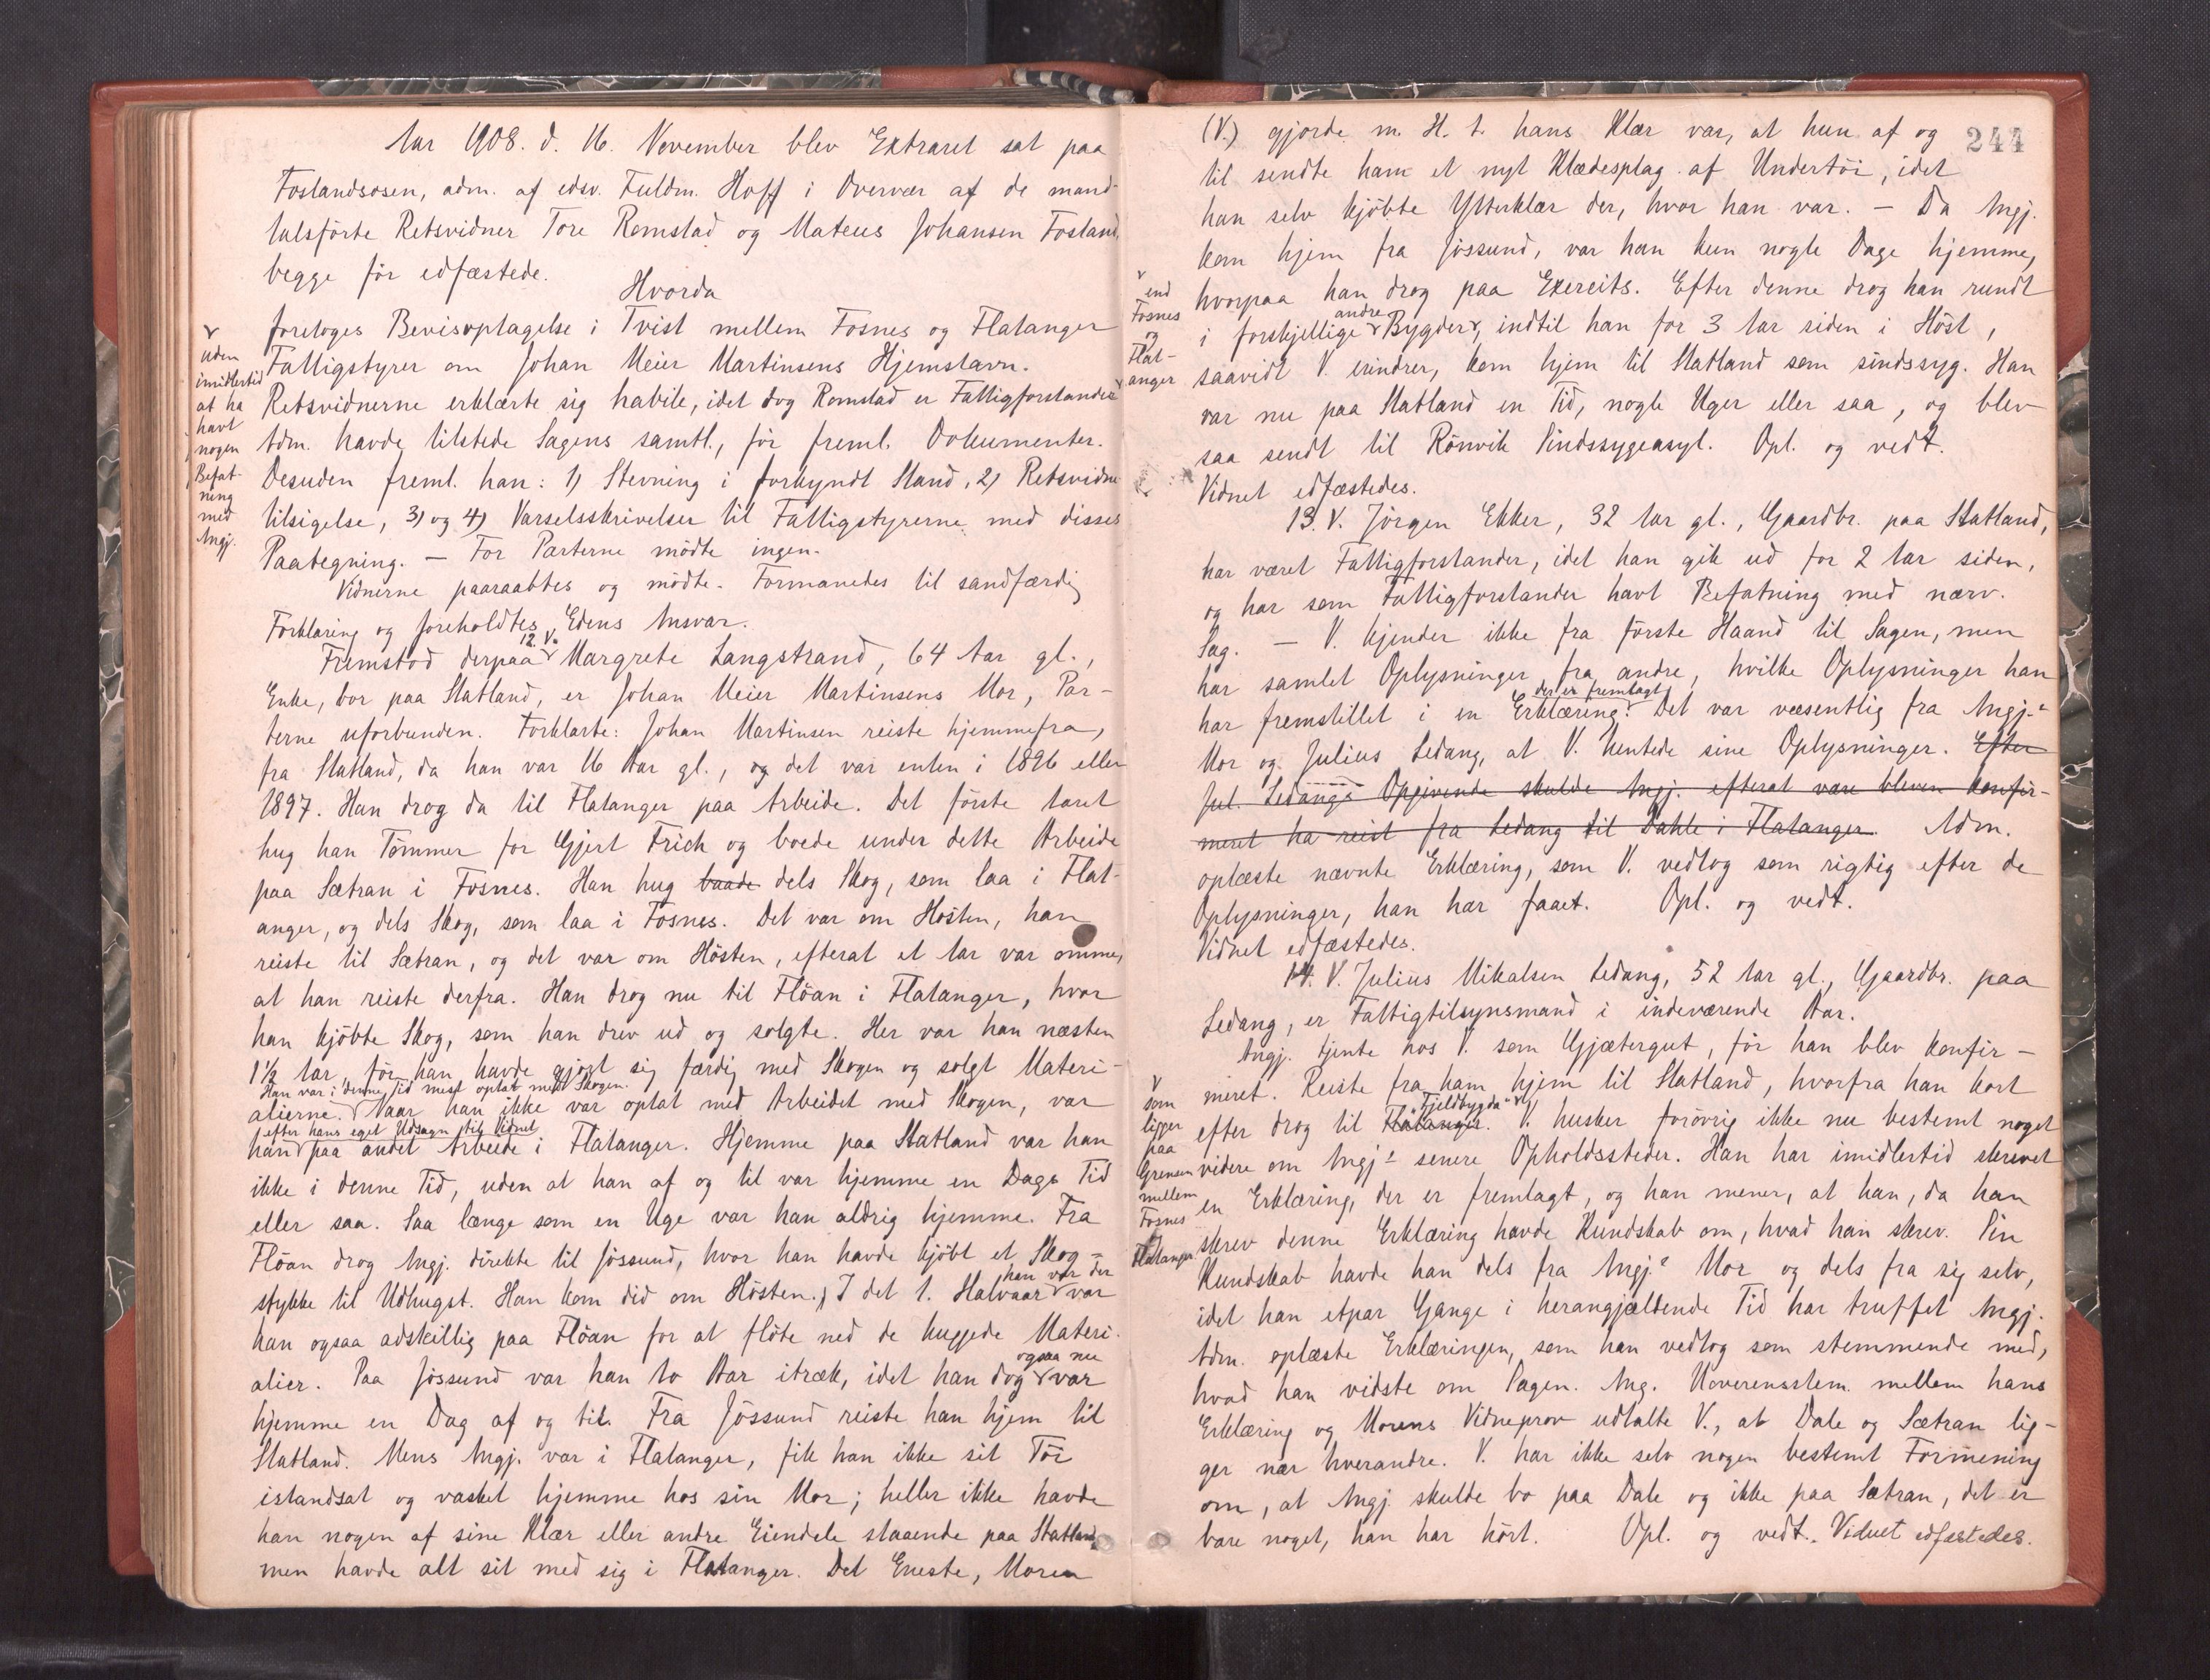 Aar 1908. d. 16. November blev Extraret sat paa
Foslandsosen, adm. af edsv. Fuldm. Hoff i Overvær af de mand-
talsførte Retsvidner Tore Romstad og Mateus Johansen Fosland,
begge før edfæstede.
Hvorda
foretoges Bevisoptagelse i Tvist mellem Fosnes og Flatanger
Fattigstyrer om Johan Meier Martinsens Hjemstavn.
Retsvidnerne erklærte sig habile, idet dog Romstad er Fattigforstander
uden
imidlertid
at ha
havt
nogen
Befat-
ning
med
Angj.
Adm. havde tilstede Sagens samtl., før freml. Dokumenter.
Desuden freml. han: 1) Stevning i forkyndt Stand, 2) Retsvidne
tilsigelse, 3) og 4) Varselsskrivelser til Fattigstyrerne med disses
Paategning. — For Parterne mödte ingen.
Vidnerne paaraabtes og mödte. Formanedes til sandfærdig
Forklaring og foreholdtes Edens Ansvar.
12. V.
Fremstod derpaa Margrete Langstrand, 64 Aar gl.,
Enke, bor paa Statland, er Johan Meier Martinsens Mor, Par-
terne uforbunden. Forklarte: Johan Martinsen reiste hjemmefra,
fra Statland, da han var 16 Aar gl., og det var enten i 1896 eller
1897. Han drog da til Flatanger paa Arbeide. Det förste Aaret
hug han Tömmer for Gjert Frich og boede under dette Arbeide
paa Sætran i Fosnes. Han hug baade dels Skog, som laa i Flat-
anger, og dels Skog, som laa i Fosnes. Det var om Hösten, han
reiste til Sætran, og det var om Hösten, efterat et Aar var omme,
at han reiste derfra. Han drog nu til Flöan i Flatanger, hvor
han kjöbte Skog, som han drev ud og solgte. Her var han næsten
1½ Aar, för han havde gjort sig færdig med Skogen og solgt Materi-
Han var i denne Tid mest optat med Skogen.
alierne. Naar han ikke var optat med Arbeidet med Skogen, var
efter hans eget Udsagn til Vidnet
han paa andet Arbeide i Flatanger. Hjemme paa Statland var han
ikke i denne Tid, uden at han af og til var hjemme en Dags Tid
eller saa. Saa længe som en Uge var han aldrig hjemme. Fra
Flöan drog Angj. direkte til Jössund, hvor han havde kjöbt et Skog-
stykke til Udhugst. Han kom did om Hösten. I det 1. Halvaar
han var der
var
han ogsaa adskillig paa Flöan for at flöte ned de huggede Materi-
alier. Paa Jössund var han to Aar itræk, idet han dog
ogsaa nu
var
hjemme en Dag af og til. Fra Jössund reiste han hjem til
Statland. Mens Angj. var i Flatanger, fik han ikke sit Töi
istandsat og vasket hjemme hos sin Mor; heller ikke havde
han nogen af sine Klær eller andre Eiendele staaende paa Statland,
men havde alt sit med sig i Flatanger. Det Eneste, Moren
244
(V.) gjorde m. H. t. hans Klær var, at hun af og
til sendte ham et nyt Klædesplag af Undertöi, idet
han selv kjöbte Ytterklær der, hvor han var. — Da Angj.
kom hjem fra Jössund, var han kun nogle Dage hjemme,
hvorpaa han drog paa Exercits. Efter denne drog han rundt
andre
i forskjellige Bygder, indtil han for 3 Aar siden i Höst,
end
Fosnes
og
Flat-
anger
saavidt V. erindrer, kom hjem til Statland som sindssyg. Han
var nu paa Statland en Tid, nogle Uger eller saa, og blev
saa sendt til Rönvik Sindssygeasyl. Opl. og vedt.
Vidnet edfæstedes.
13. V. Jörgen Ekker, 32 Aar gl., Gaardbr. paa Statland,
har været Fattigforstander, idet han gik ud for 2 Aar siden,
og har som Fattigforstander havt Befatning med nærv.
Sag. — V. kjender ikke fra förste Haand til Sagen, men
har samlet Oplysninger fra andre, hvilke Oplysninger han
der er fremlagt
har fremstillet i en Erklæring. Det var væsentlig fra Angj.s
Mor og Julius Ledang, at V. hentede sine Oplysninger. Efter
Jul. Ledangs Opgivende skulde Angj. efterat være bleven konfir-
meret ha reist fra Ledang til Dahle i Flatanger. Adm.
oplæste nævnte Erklæring, som V. vedtog som rigtig efter de
Oplysninger, han har faaet. Opl. og vedt.
Vidnet edfæstedes.
14. V. Julius Mikalsen Ledang, 52 Aar gl., Gaardbr. paa
Ledang, er Fattigtilsynsmand i indeværende Aar.
Angj. tjente hos V. som Gjætergut, för han blev konfir-
meret. Reiste fra ham hjem til Statland, hvorfra han kort
"Fjeldbygda"
efter drog til Flatanger. V. husker forövrig ikke nu bestemt noget
som
ligger
paa
Grensen
mellem
Fosnes
Flatanger
videre om Angj.s senere Opholdssteder. Han har imidlertid skrevet
en Erklæring, der er fremlagt, og han mener, at han, da han
skrev denne Erklæring havde Kundskab om, hvad han skrev. Sin
Kundskab havde han dels fra Angj.s Mor og dels fra sig selv,
idet han etpar Gange i herangjældende Tid har truffet Angj.
Adm. oplæste Erklæringen, som han vedtog som stemmende med,
hvad han vidste om Sagen. Ang. Uoverensstem. mellem hans
Erklæring og Morens Vidneprov udtalte V., at Dale og Sætran lig-
ger nær hverandre. V. har ikke selv nogen bestemt Formening
om, at Angj. skulde bo paa Dale og ikke paa Sætran, det er
bare noget, han har hört. Opl. og vedt. Vidnet edfæstedes.